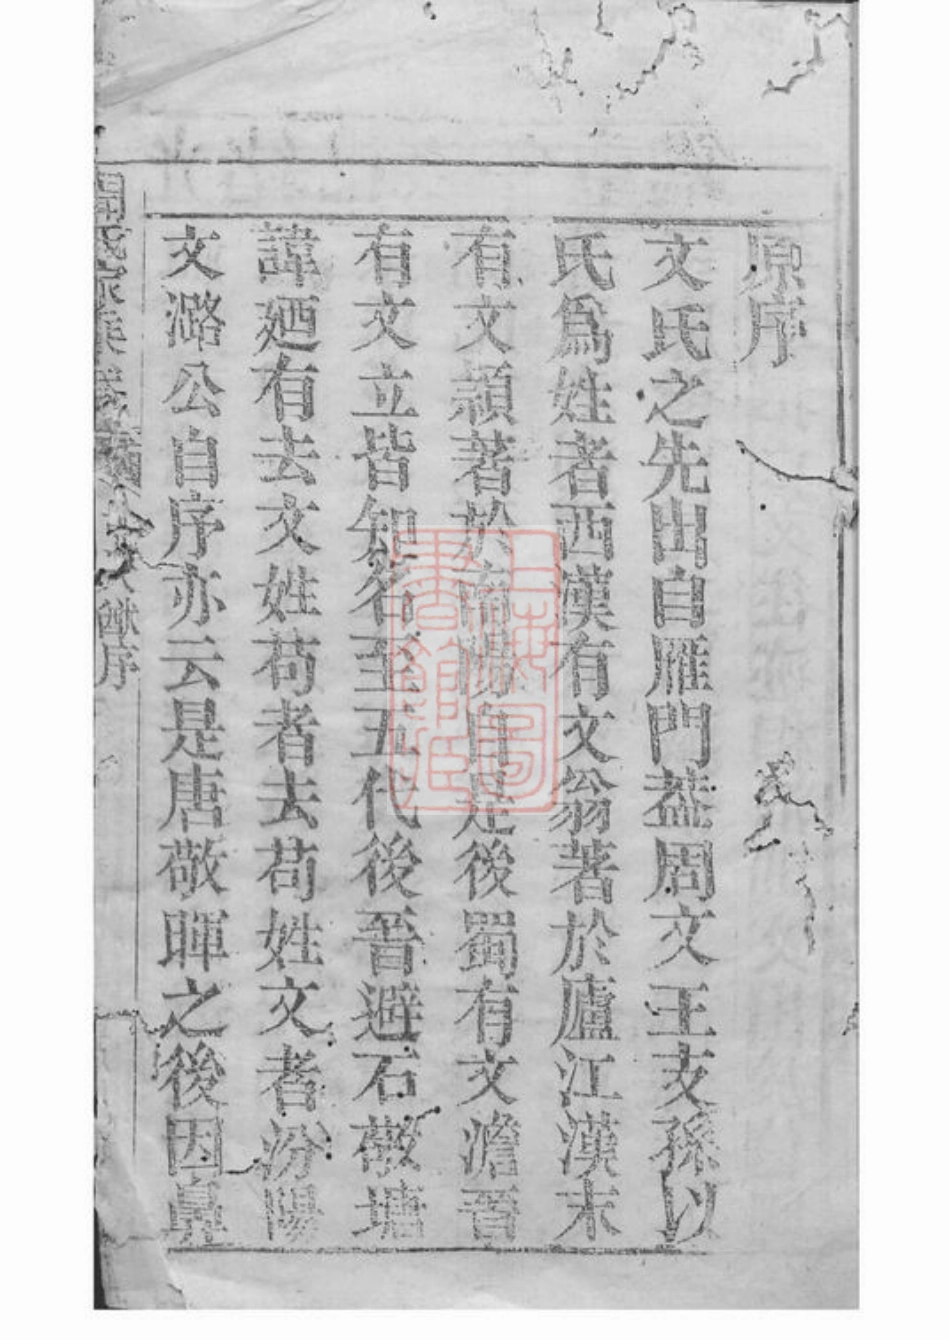 原序
文氏之先出自雁門葢周文王支孫以
氏爲姓者西漢有文翁著於廬江漢末
有文頴著於南陽自是後蜀有文澹晉
有文立皆知名至五代後晉避石敬塘
諱廼有去文姓苟者去苟姓文者汾陽
文潞公自序亦云是唐敬暉之後因鼻
猷序
上海圖書館臣